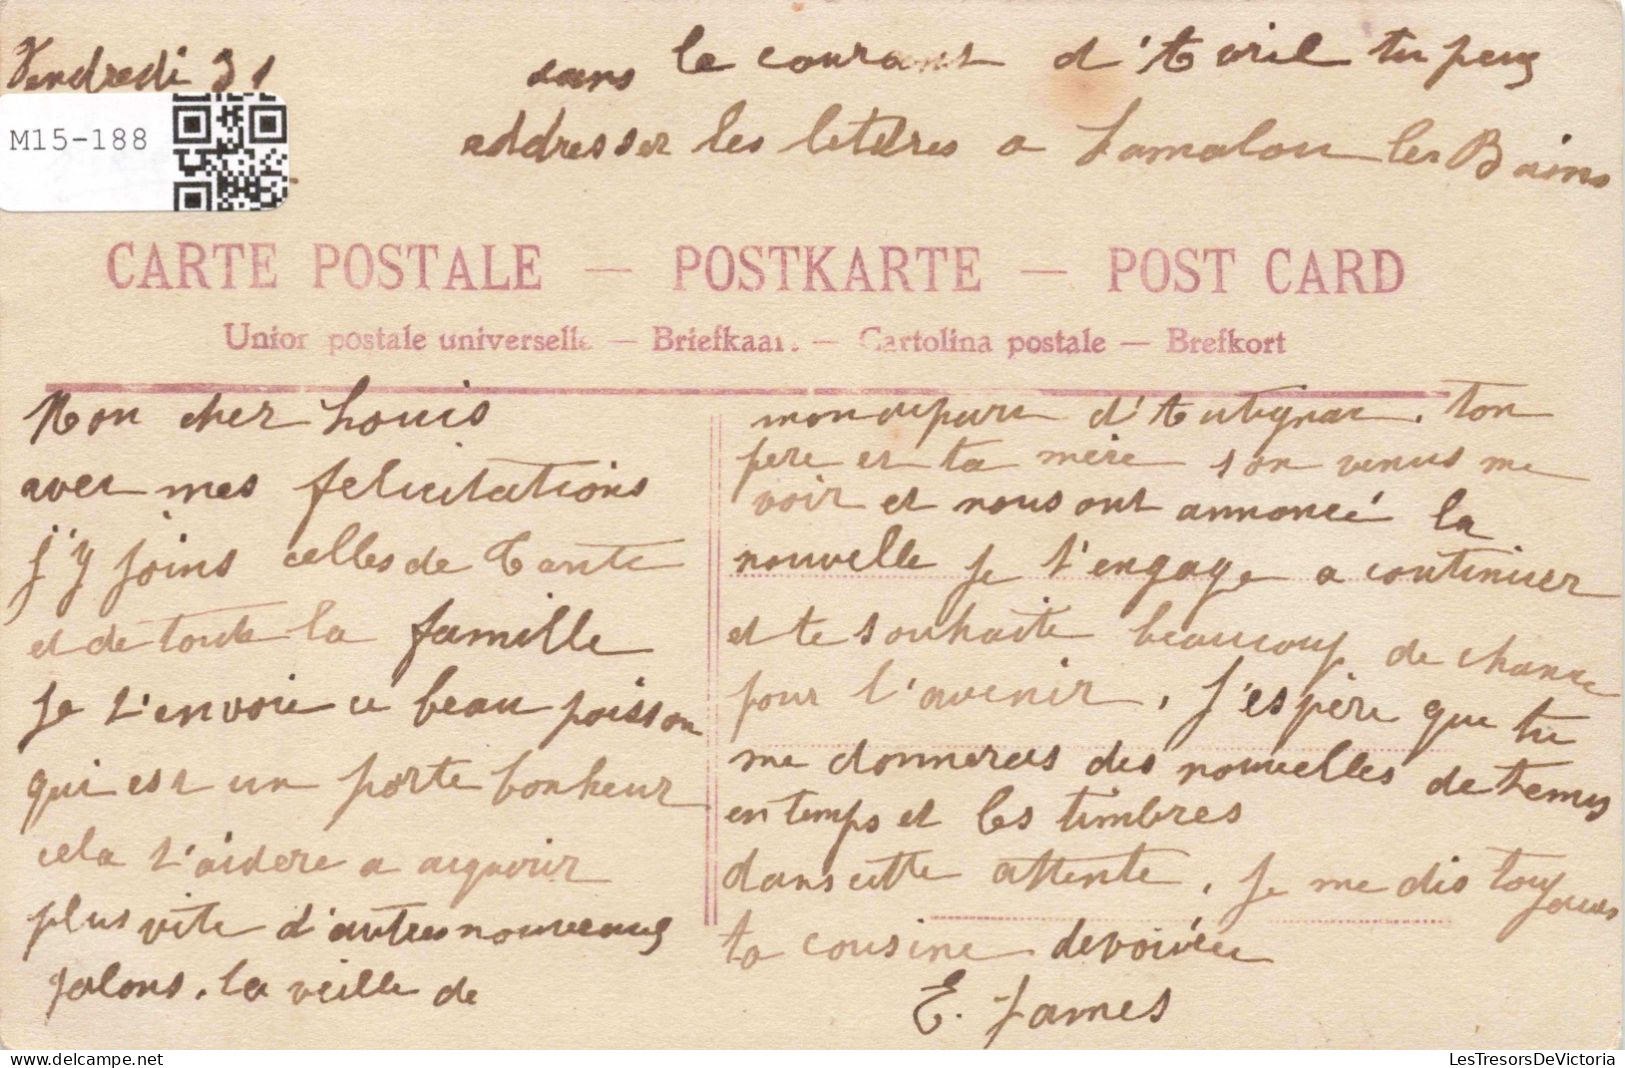 Vendredi 31
M15-188
dans le courant d'Avril tu peus
addresser les lettres a Lamalou les Bains
CARTE POSTALE — POSTKARTE — POST CARD
Union postale universelle — Briefkaart. — Cartolina postale — Brefkort
Mon cher Louis
avec mes felicitations
j'y joins celles de Tante
et de toute la famille
Je t'envoie ce beau poisson
qui est un porte bonheur
cela t'aidera a aquerir
plus vite d'autres nouveaus
galons. la veille de
mon depart d'Autignac. ton
pere et ta mère son venus me
voir et nous ont annoncé la
nouvelle je t'engage a continuer
et te souhaite beaucoup de chance
pour l'avenir, J'espère que tu
me donneras des nouvelles de temps
en temps et les timbres
dans cette attente, je me dis toujours
ta cousine devouée
E. James
LesTresorsDeVictoria
lestresorsdevictoria.delcampe.net